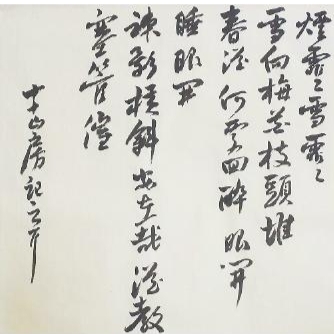 煙霏〻雪霏〻
雪向梅花枝頭堆
春從何處回醉眼開
睡眼開
疎影橫斜安在哉從教
塞管催
山房記